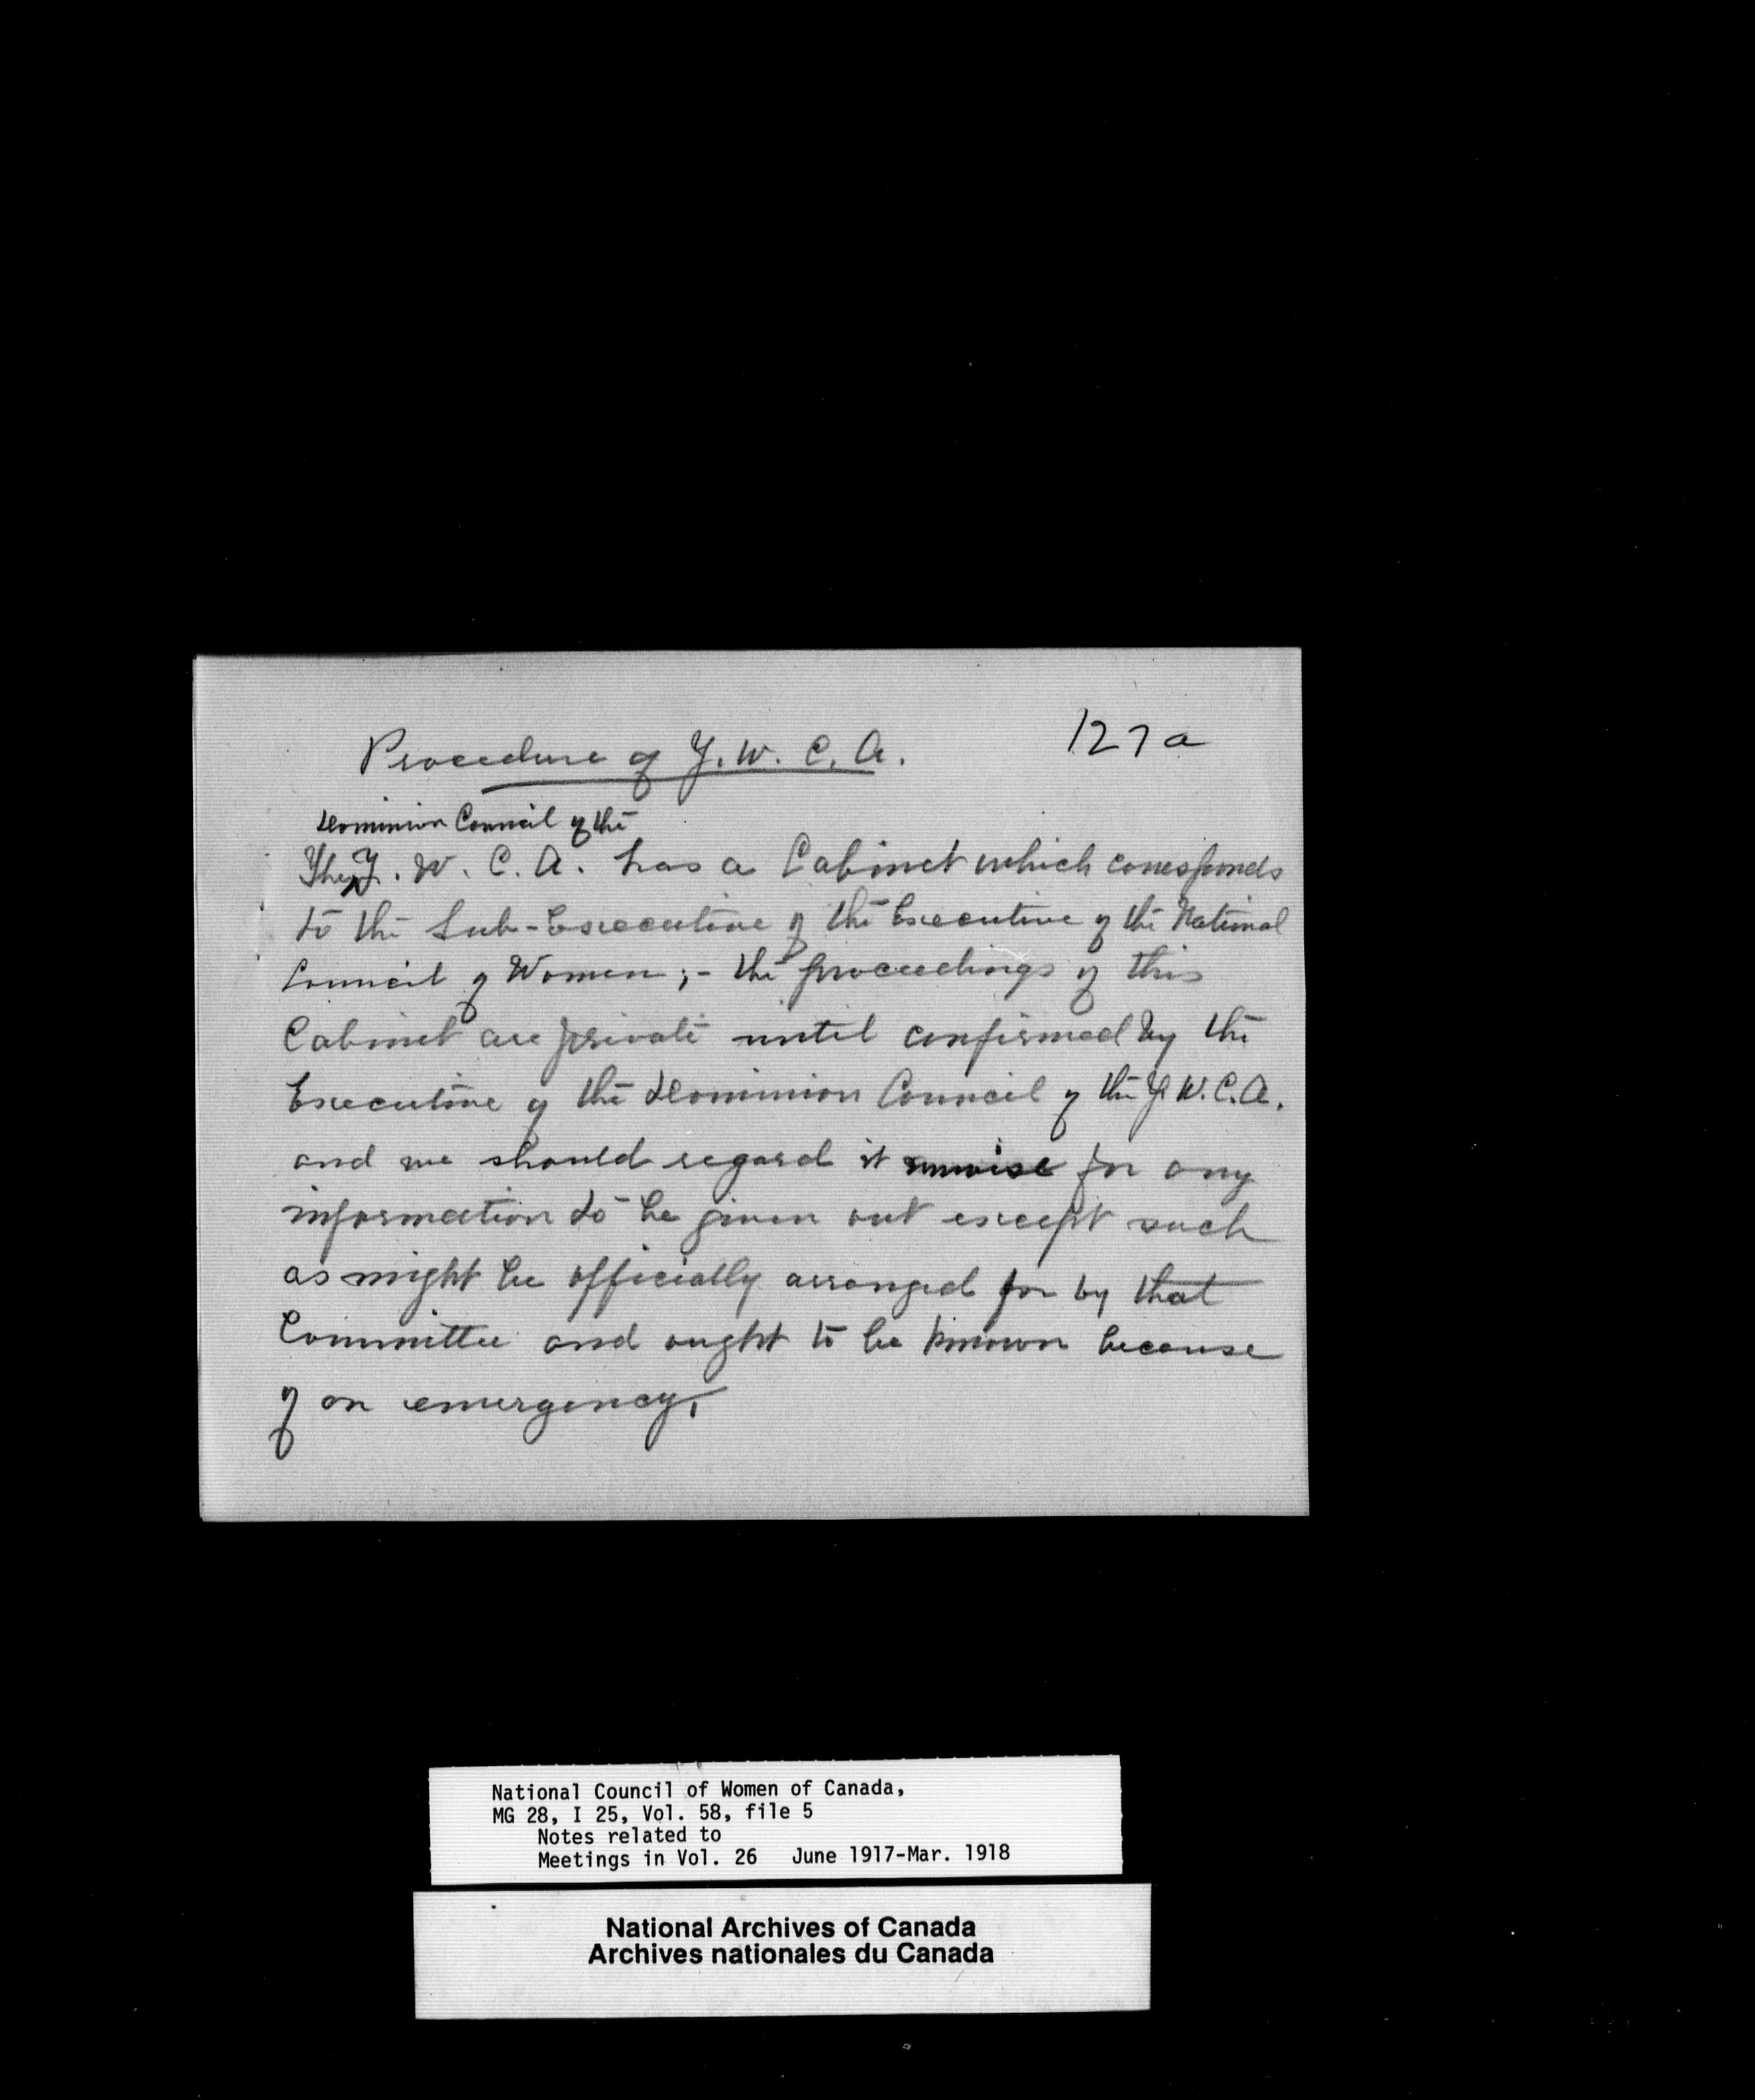 127a
Procedure of Y.W.C.A.
Dominion Council of the
The Y.W.C.A. has a Cabinet which corresponds
to the Sub-Executive of the Executive of the National
Council of Women ;- the proceedings of this
Cabinet are private until confirmed by the
Executive of the Dominion Council of the Y.W.C.A.
and we should regard it unwise for any
information to be given out except such
as might be officially arranged for by that
Committee and ought to be known because
of an emergency.
National Council of Women of Canada,
MG 28, I 25, Vol. 58, file 5
Notes related to
Meetings in Vol. 26 June 1917-Mar. 1918
National Archives of Canada
Archives nationales du Canada